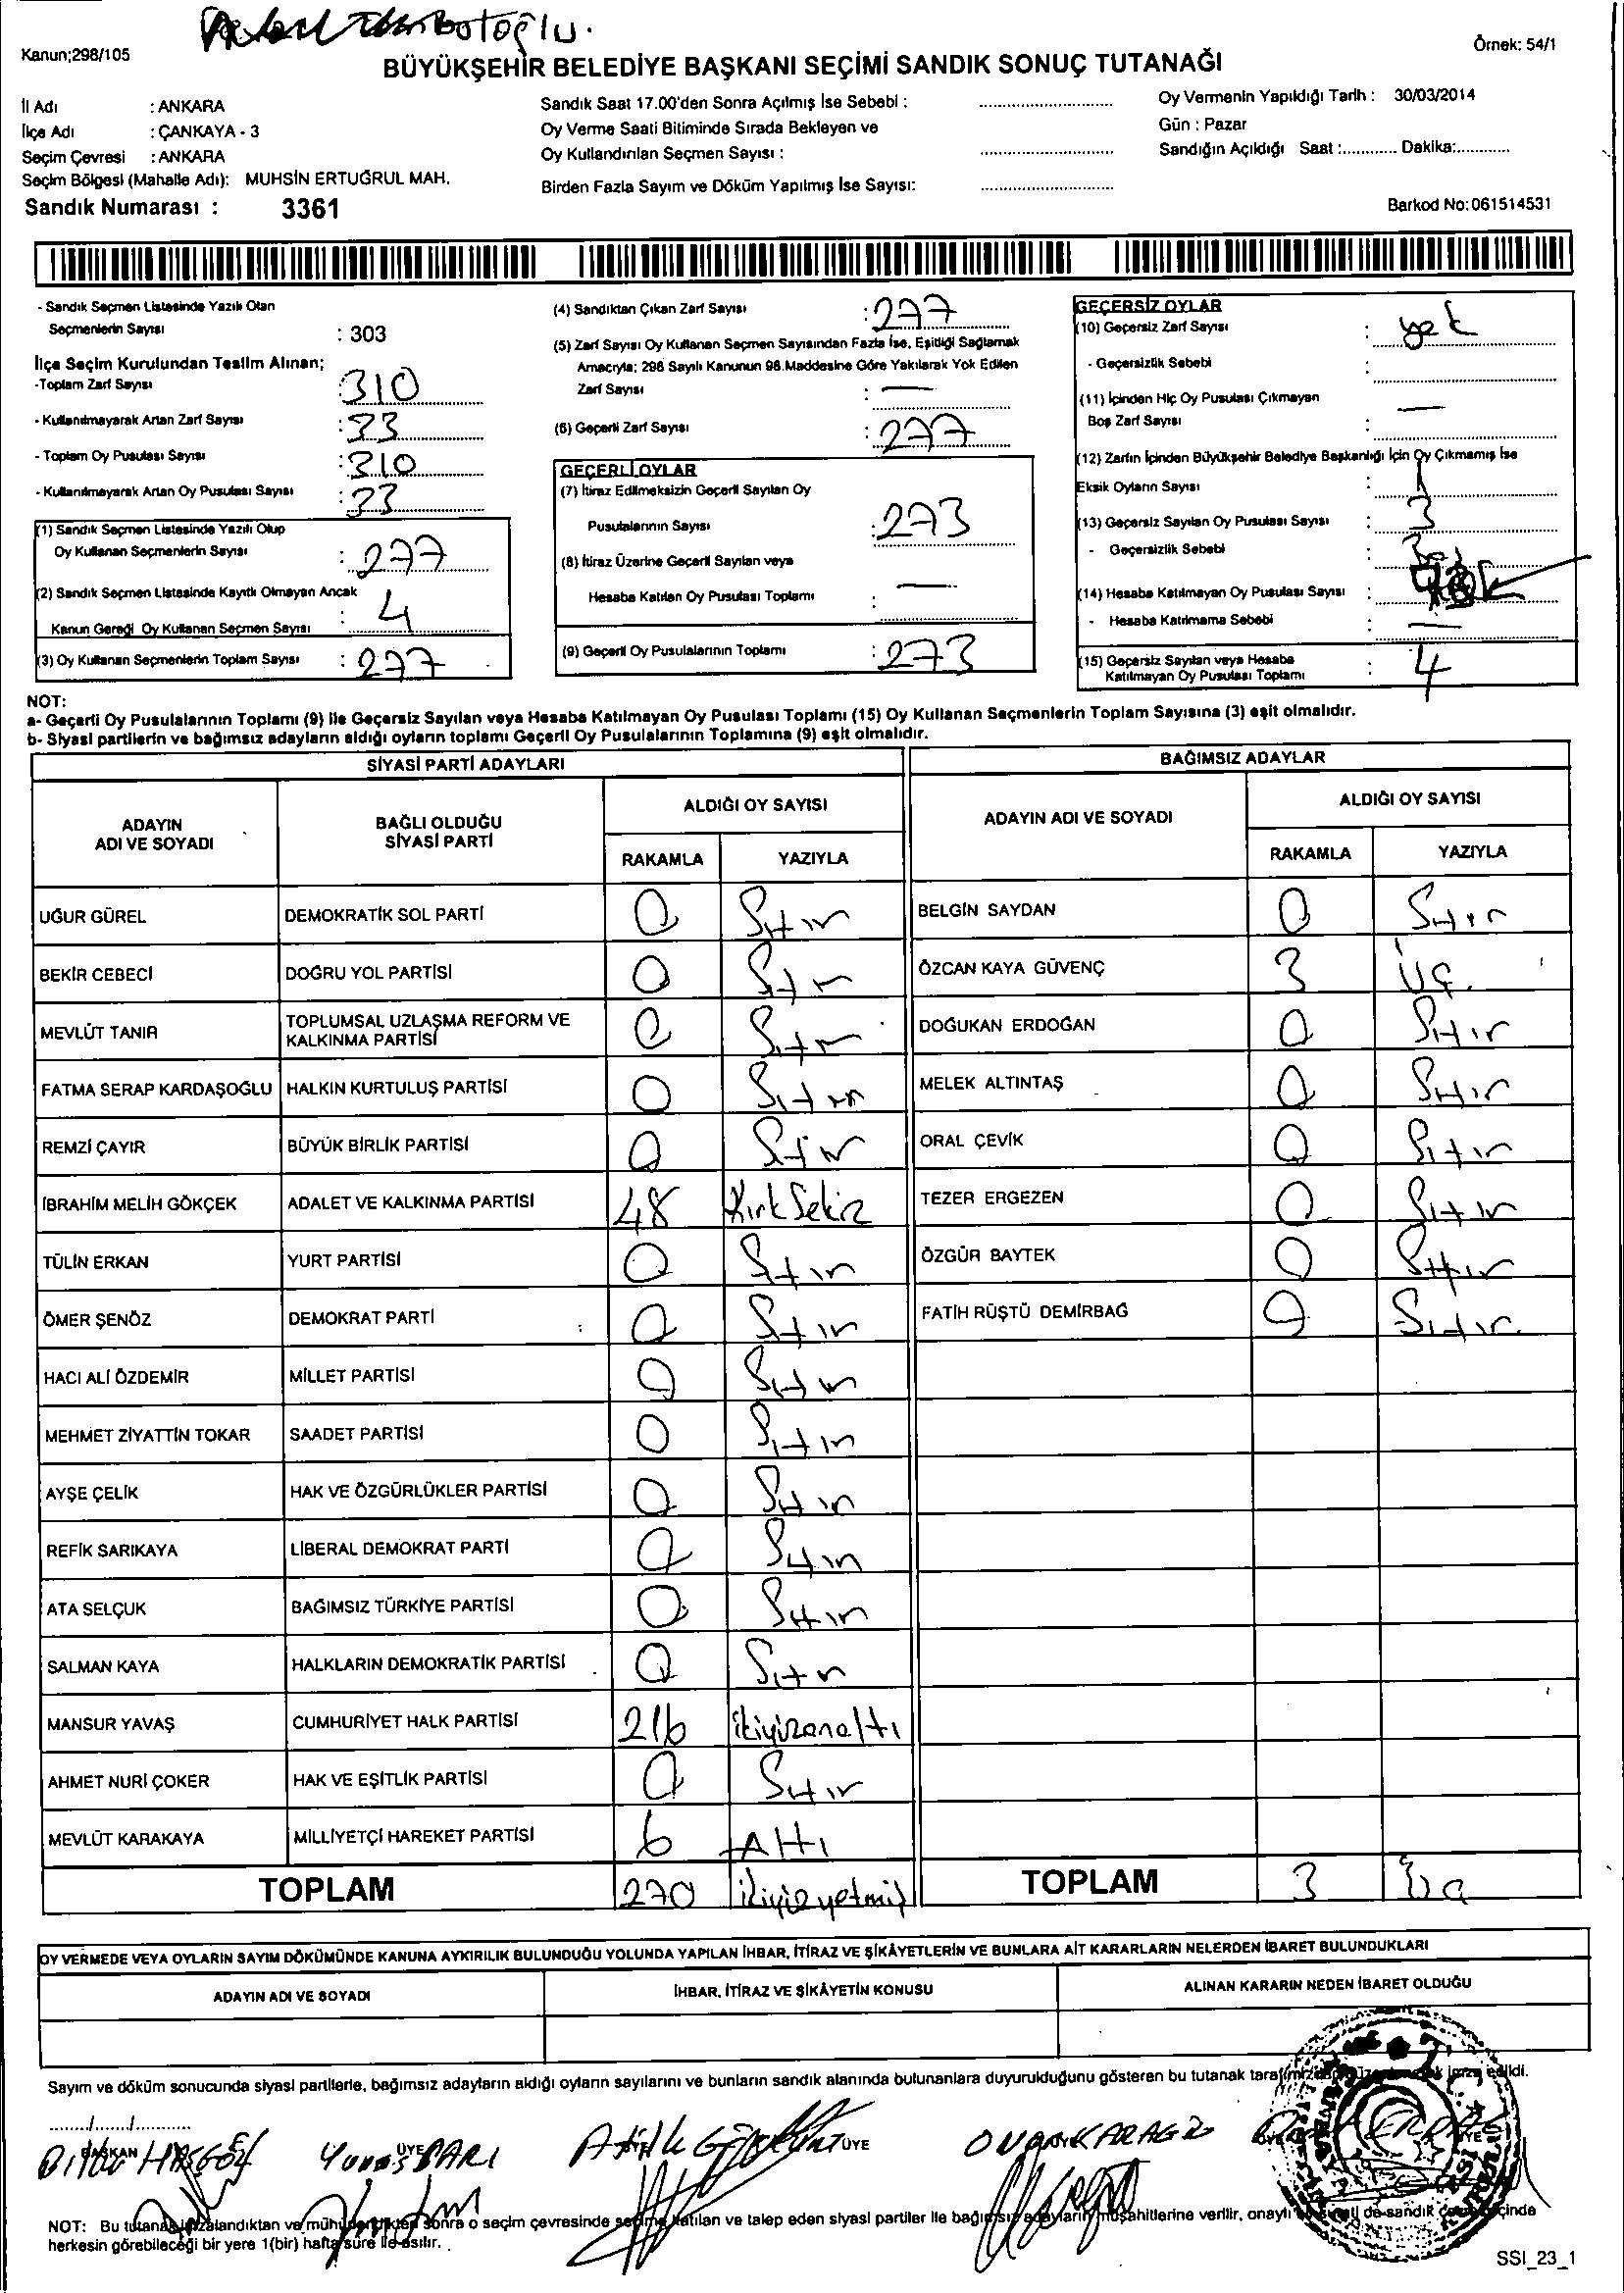 Kanun;298/105
Örnek: 54/1
BÜYÜKŞEHİR BELEDİYE BAŞKANI SEÇİMİ SANDIK SONUÇ TUTANAĞI
İl Adı : ANKARA
İlçe Adı : ÇANKAYA - 3
Seçim Çevresi : ANKARA
Seçim Bölgesi (Mahalle Adı): MUHSİN ERTUĞRUL MAH.
Sandık Numarası : 3361
Sandık Saat 17.00'den Sonra Açılmış İse Sebebi :
Oy Verme Saati Bitiminde Sırada Bekleyen ve
Oy Kullandırılan Seçmen Sayısı :
Birden Fazla Sayım ve Döküm Yapılmış İse Sayısı:
Oy Vermenin Yapıldığı Tarih : 30/03/2014
Gün : Pazar
Sandığın Açıldığı Saat :............ Dakika:...........
Barkod No:061514531
- Sandık Seçmen Listesinde Yazılı Olan
Seçmenlerin Sayısı : 303
İlçe Seçim Kurulundan Teslim Alınan;
-Toplam Zarf Sayısı : 310
- Kullanılmayarak Artan Zarf Sayısı : 33
- Toplam Oy Pusulası Sayısı : 310
- Kullanılmayarak Artan Oy Pusulası Sayısı : 33
(1) Sandık Seçmen Listesinde Yazılı Olup
Oy Kullanan Seçmenlerin Sayısı : 277
(2) Sandık Seçmen Listesinde Kayıtlı Olmayan Ancak
Kanun Gereği Oy Kullanan Seçmen Sayısı : 4
(3) Oy Kullanan Seçmenlerin Toplam Sayısı : 277
(4) Sandıktan Çıkan Zarf Sayısı : 277
(5) Zarf Sayısı Oy Kullanan Seçmen Sayısından Fazla İse, Eşitliği Sağlamak
Amacıyla; 298 Sayılı Kanunun 98.Maddesine Göre Yakılarak Yok Edilen
Zarf Sayısı : —
(6) Geçerli Zarf Sayısı : 277
GEÇERLİ OYLAR
(7) İtiraz Edilmeksizin Geçerli Sayılan Oy
Pusulalarının Sayısı : 273
(8) İtiraz Üzerine Geçerli Sayılan veya
Hesaba Katılan Oy Pusulası Toplamı : —
(9) Geçerli Oy Pusulalarının Toplamı : 273
GEÇERSİZ OYLAR
(10) Geçersiz Zarf Sayısı : yok
- Geçersizlik Sebebi :
(11) İçinden Hiç Oy Pusulası Çıkmayan
Boş Zarf Sayısı : —
(12) Zarfın İçinden Büyükşehir Belediye Başkanlığı İçin Oy Çıkmamış İse
Eksik Oyların Sayısı : 1
(13) Geçersiz Sayılan Oy Pusulası Sayısı : 3
- Geçersizlik Sebebi :
(14) Hesaba Katılmayan Oy Pusulası Sayısı :
- Hesaba Katılmama Sebebi : —
(15) Geçersiz Sayılan veya Hesaba
Katılmayan Oy Pusulası Toplamı : 4
NOT:
a- Geçerli Oy Pusulalarının Toplamı (9) ile Geçersiz Sayılan veya Hesaba Katılmayan Oy Pusulası Toplamı (15) Oy Kullanan Seçmenlerin Toplam Sayısına (3) eşit olmalıdır.
b- Siyasi partilerin ve bağımsız adayların aldığı oyların toplamı Geçerli Oy Pusulalarının Toplamına (9) eşit olmalıdır.
SİYASİ PARTİ ADAYLARI
ADAYIN ADI VE SOYADI BAĞLI OLDUĞU SİYASİ PARTİ ALDIĞI OY SAYISI
RAKAMLA YAZIYLA
UĞUR GÜREL DEMOKRATİK SOL PARTİ 0 Sıfır
BEKİR CEBECİ DOĞRU YOL PARTİSİ 0 Sıfır
MEVLÜT TANIR TOPLUMSAL UZLAŞMA REFORM VE KALKINMA PARTİSİ 0 Sıfır
FATMA SERAP KARDAŞOĞLU HALKIN KURTULUŞ PARTİSİ 0 Sıfır
REMZİ ÇAYIR BÜYÜK BİRLİK PARTİSİ 0 Sıfır
İBRAHİM MELİH GÖKÇEK ADALET VE KALKINMA PARTİSİ 48 Kırk Sekiz
TÜLİN ERKAN YURT PARTİSİ 0 Sıfır
ÖMER ŞENÖZ DEMOKRAT PARTİ 0 Sıfır
HACI ALİ ÖZDEMİR MİLLET PARTİSİ 0 Sıfır
MEHMET ZİYATTİN TOKAR SAADET PARTİSİ 0 Sıfır
AYŞE ÇELİK HAK VE ÖZGÜRLÜKLER PARTİSİ 0 Sıfır
REFİK SARIKAYA LİBERAL DEMOKRAT PARTİ 0 Sıfır
ATA SELÇUK BAĞIMSIZ TÜRKİYE PARTİSİ 0 Sıfır
SALMAN KAYA HALKLARIN DEMOKRATİK PARTİSİ 0 Sıfır
MANSUR YAVAŞ CUMHURİYET HALK PARTİSİ 216 ikiyüzonaltı
AHMET NURİ ÇOKER HAK VE EŞİTLİK PARTİSİ 0 Sıfır
MEVLÜT KARAKAYA MİLLİYETÇİ HAREKET PARTİSİ 6 Altı
TOPLAM 270 ikiyüzyetmiş
BAĞIMSIZ ADAYLAR
ADAYIN ADI VE SOYADI ALDIĞI OY SAYISI
RAKAMLA YAZIYLA
BELGİN SAYDAN 0 Sıfır
ÖZCAN KAYA GÜVENÇ 3 ÜÇ.
DOĞUKAN ERDOĞAN 0 Sıfır
MELEK ALTINTAŞ 0 Sıfır
ORAL ÇEVİK 0 Sıfır
TEZER ERGEZEN 0 Sıfır
ÖZGÜR BAYTEK 0 Sıfır
FATİH RÜŞTÜ DEMİRBAĞ 0 Sıfır
TOPLAM 3 Üç
OY VERMEDE VEYA OYLARIN SAYIM DÖKÜMÜNDE KANUNA AYKIRILIK BULUNDUĞU YOLUNDA YAPILAN İHBAR, İTİRAZ VE ŞİKÂYETLERİN VE BUNLARA AİT KARARLARIN NELERDEN İBARET BULUNDUKLARI
ADAYIN ADI VE SOYADI İHBAR, İTİRAZ VE ŞİKÂYETİN KONUSU ALINAN KARARIN NEDEN İBARET OLDUĞU
Sayım ve döküm sonucunda siyasi partilerle, bağımsız adayların aldığı oyların sayılarını ve bunların sandık alanında bulunanlara duyurulduğunu gösteren bu tutanak imza edildi.
....../....../..............
BAŞKAN ÜYE ÜYE
NOT: Bu tutanak imzalandıktan ve mühürlendikten sonra o seçim çevresinde seçime katılan ve talep eden siyasi partiler ile bağımsız adayların müşahitlerine verilir, onaylı bir sureti de sandık çevresi içinde
herkesin görebileceği bir yere 1(bir) hafta süre ile asılır.
SSI_23_1